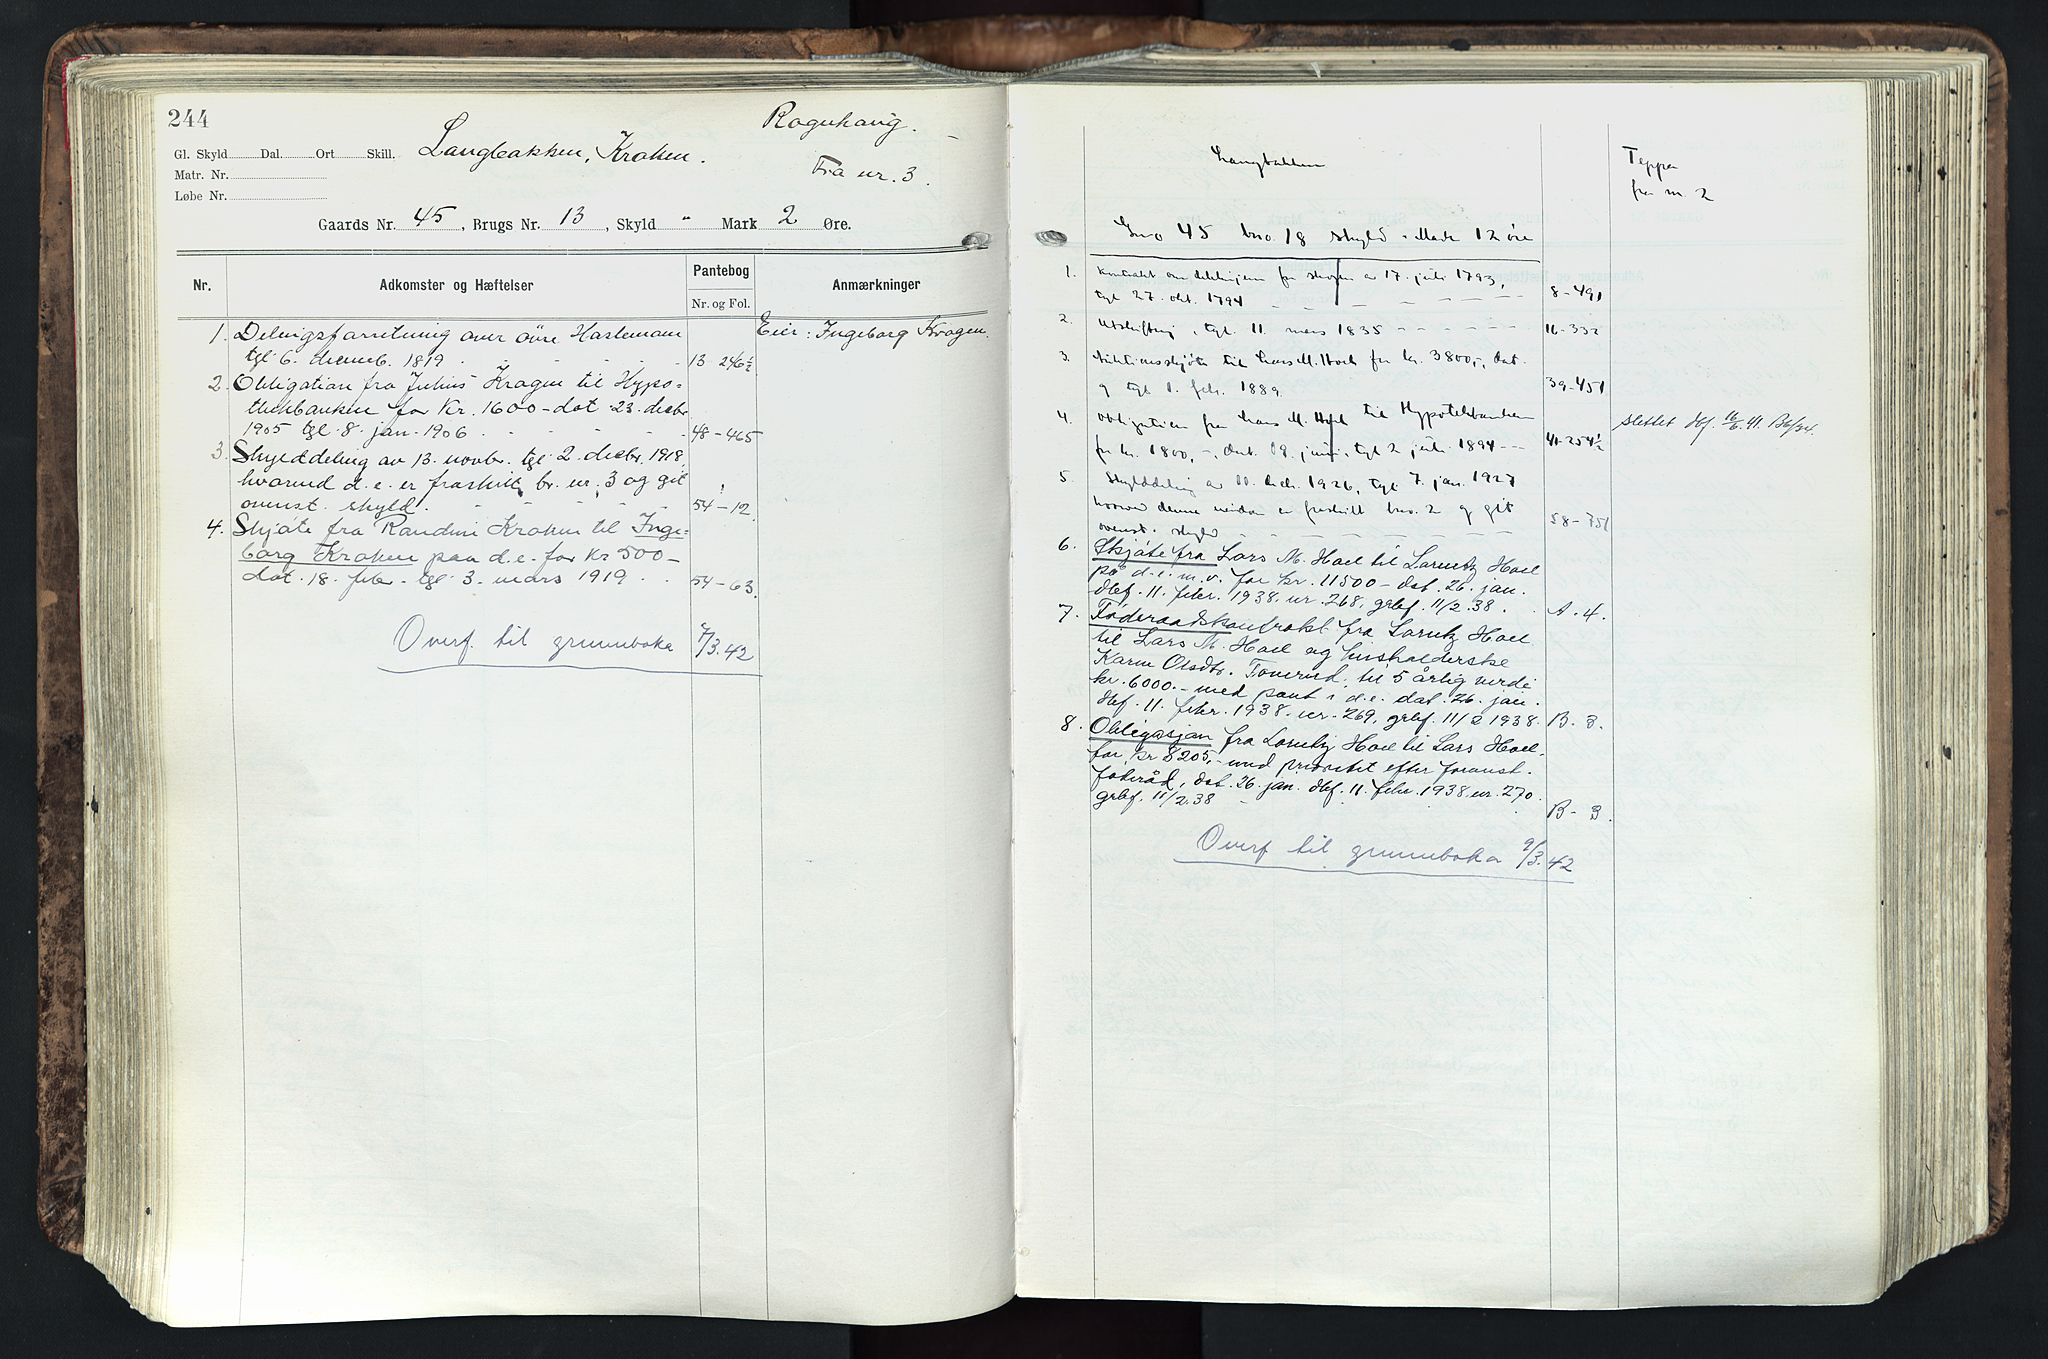 244
Langbakken, Kroken.
Rognhaug.
Fra nr. 3.
Gl. Skyld Dal. Ort Skill.
Matr. Nr.
Løbe Nr.
Gaards Nr. 45, Brugs Nr. 13, Skyld " Mark 2 Øre.
Nr.
Adkomster og Hæftelser
Pantebog
Nr. og Fol.
Anmærkninger
1. Delingsforretning over övre Haslemoen
tgl. 6. decemb. 1819 13 246½
Eier: Ingeborg Kragen.
2. Obligation fra Julius Kragen til Hypo-
thekbanken for Kr. 1600 - dat. 23. decbr
1905 tgl. 8. jan. 1906 48-465
3. Skylddeling av 13. novbr. tgl. 2. decbr. 1918,
hvorved d.e. er fraskilt br. nr. 3 og git
ovenst. skyld. 54-12.
4. Skjöte fra Randine Kroken til Inge-
borg Kroken paa d.e. for kr 500 -
dat. 18. febr. tgl. 3. mars 1919 54-63.
Overf. til grunnboka 7/3.42
Langbakken
Teppa
fra nr. 2
Gno 45 bno. 18 skyld " Mark 12 öre
1. Kontrakt om delingen for skogen av 17. juli 1793,
tgl 27. okt. 1794 8-491
2. Utskiftning, tgl. 11 mars 1835 16-332
3. Auktionsskjöte til Lars M. Hoel for kr. 3800,-, dat.
og tgl. 1. febr. 1889 39-451
4. Obligation fra Lars M. Hoel til Hypotekbanken
for kr. 1800,-, dat. 19. juni, tgl 2 juli 1894 41-254½
slettet dbf. 16/6.41. B6/34.
5. Skylddeling av 11. decbr. 1926, tgl. 7. jan. 1927
hvorved denne eiendom er fraskilt bno. 2 og git
ovenst. skyld 58-751
6. Skjöte fra Lars M. Hoel til Lorentz Hoel
på d.e. m.v. for kr. 11500 - dat. 26. jan.
dbf. 11. febr. 1938. nr. 268, grbf. 11/2.38. A. 4.
7. Föderaadskontrakt fra Lorentz Hoel
til Lars M. Hoel og husholderske
Karen Olsdtr. Tonerud, til 5 årlig verdi
kr. 6000.- med pant i d.e. dat. 26. jan.
dbf. 11. febr. 1938. nr. 269, grbf. 11/2 1938. B. 3.
8. Obligasjon fra Lorentz Hoel til Lars Hoel
for kr 8205,- med prioritet efter foranst.
föderåd, dat. 26. jan. dbf. 11. febr. 1938. nr. 270.
grbf. 11/2.38 B- 3.
Overf til grunnboka 9/3.42